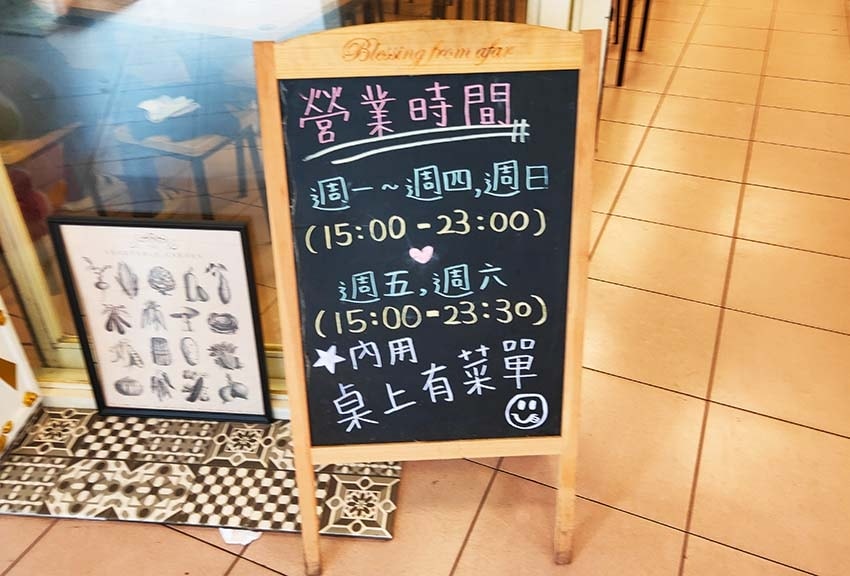 Blessing from afar
營業時間
週一~週四,週日
(15:00-23:00)
週五,週六
(15:00-23:30)
★內用
桌上有菜單